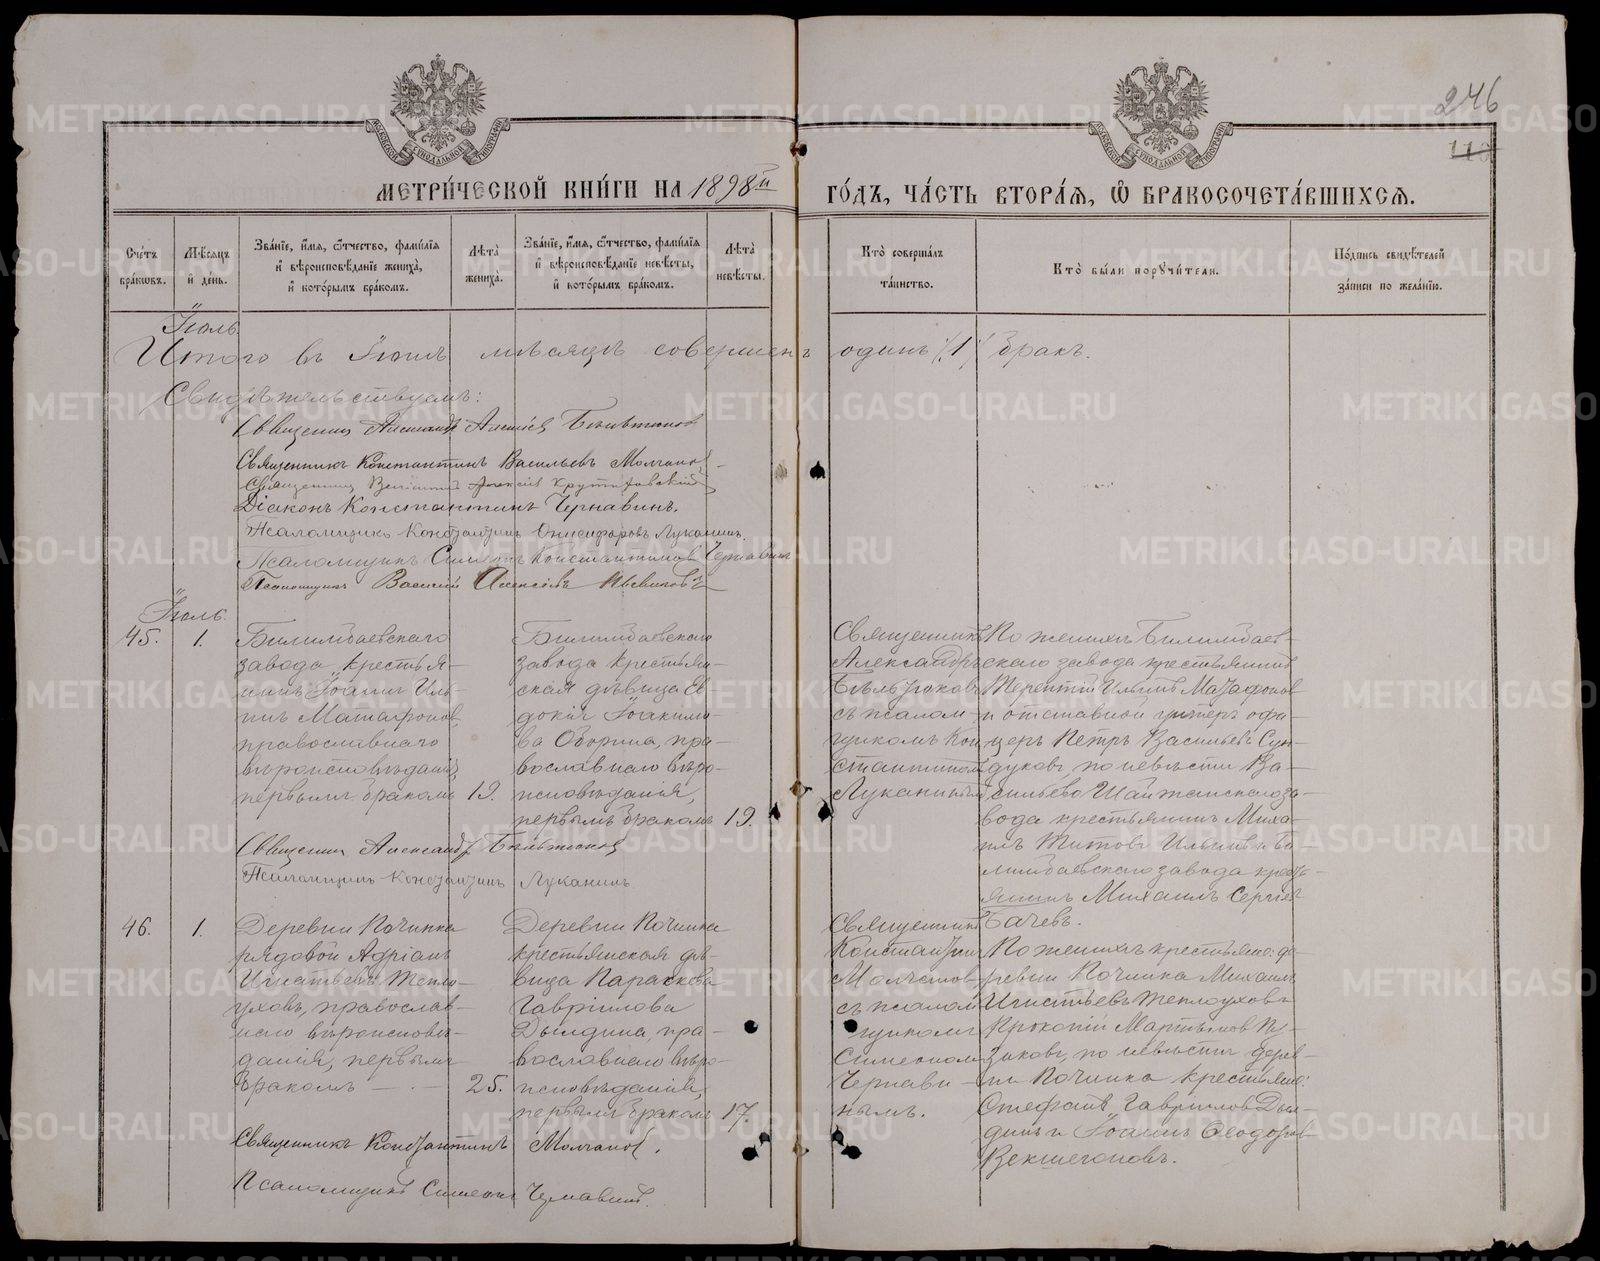 246
113
МОСКОВСКОЙ СИНОДАЛЬНОЙ ТИПОГРАФІИ
МОСКОВСКОЙ СИНОДАЛЬНОЙ ТИПОГРАФІИ
МЕТРИ́ЧЕСКОЙ КНИ́ГИ НА 1898й ГО́ДЪ, ЧА́СТЬ ВТОРА́Ѧ, Ѡ҆ БРАКОСОЧЕТА́ВШИХСѦ.
Сче́тъ бра́кѡвъ.
Мѣ́сѧцъ и҆ де́нь.
Зва́нїе, и҆́мѧ, ѻ҆́тчество, фамилїѧ и҆ вѣроисповѣ́данїе жениха̀, и҆ кото́рымъ бра́комъ.
Лѣ́та жениха̀.
Зва́нїе, и҆́мѧ, ѻ҆́тчество, фамилїѧ и҆ вѣроисповѣ́данїе невѣ́сты, и҆ кото́рымъ бра́комъ.
Лѣ́та невѣ́сты.
Кто̀ соверша́лъ та́инство.
Кто̀ бы́ли порꙋчи́тели.
По́дпись свидѣ́телей за́писи по жела́нїю.
Іюль.
Итого въ Іюнѣ мѣсяцѣ совершенъ одинъ /1/ бракъ.
Свидѣтельствуемъ:
Священникъ Александръ Алексіевъ
Священникъ Константинъ Васильевъ Молчановъ
Священникъ Алексіевъ
Діаконъ Константинъ Чернавинъ.
Псаломщикъ Константинъ Онисифоровъ Луканинъ.
Псаломщикъ Симеонъ Константиновъ Чернавинъ
Псаломщикъ Василій Алексіевъ
Іюль.
45.
1.
Билимбаевскаго
завода, крестья-
нинъ Іоаннъ Иль-
инъ Матафоновъ,
православнаго
вѣроисповѣданія,
первымъ бракомъ
19.
Билимбаевскаго
завода крестьян-
ская дѣвица Ев-
докія Іоакимо-
ва Оборина, пра-
вославнаго вѣро-
исповѣданія,
первымъ бракомъ
19.
Священникъ
Александръ
съ псалом-
щикомъ Кон-
стантиномъ
Луканинымъ
По женихѣ Билимбаев-
скаго завода крестьянинъ
Терентій Ильинъ Матафоновъ
и отставной унтеръ офи-
церъ Петръ Васильевъ Сун-
дуковъ, по невѣстѣ Ва-
сильево Шайтанскаго за-
вода крестьянинъ Миха-
илъ Титовъ Ильинъ и Би-
лимбаевскаго завода кресть-
янинъ Михаилъ Сергіевъ
Бачевъ.
Священникъ Александръ
Псаломщикъ Константинъ Луканинъ
46.
1.
Деревни Починка
рядовой Адріанъ
Игнатьевъ Тепло-
уховъ, православ-
наго вѣроисповѣ-
данія, первымъ
бракомъ — . —
25.
Деревни Починка
крестьянская дѣ-
вица Параскева
Гавріилова
Дылдина, пра-
вославнаго вѣро-
исповѣданія,
первымъ бракомъ
17.
Священникъ
Константинъ
Молчановъ
съ псалом-
щикомъ
Симеономъ
Чернави-
нымъ.
По женихѣ крестьяне: де-
ревни Починка Михаилъ
Игнатьевъ Теплоуховъ
Прокопій Мартыновъ Пу-
зиковъ, по невѣстѣ дерев-
ни Починка крестьяне:
Стефанъ Гавріиловъ Дыл-
динъ и Іоаннъ Ѳеодоровъ
Векшегоновъ.
Священникъ Константинъ Молчановъ.
Псаломщикъ Симеонъ Чернавинъ.
METRIKI.GASO-URAL.RU